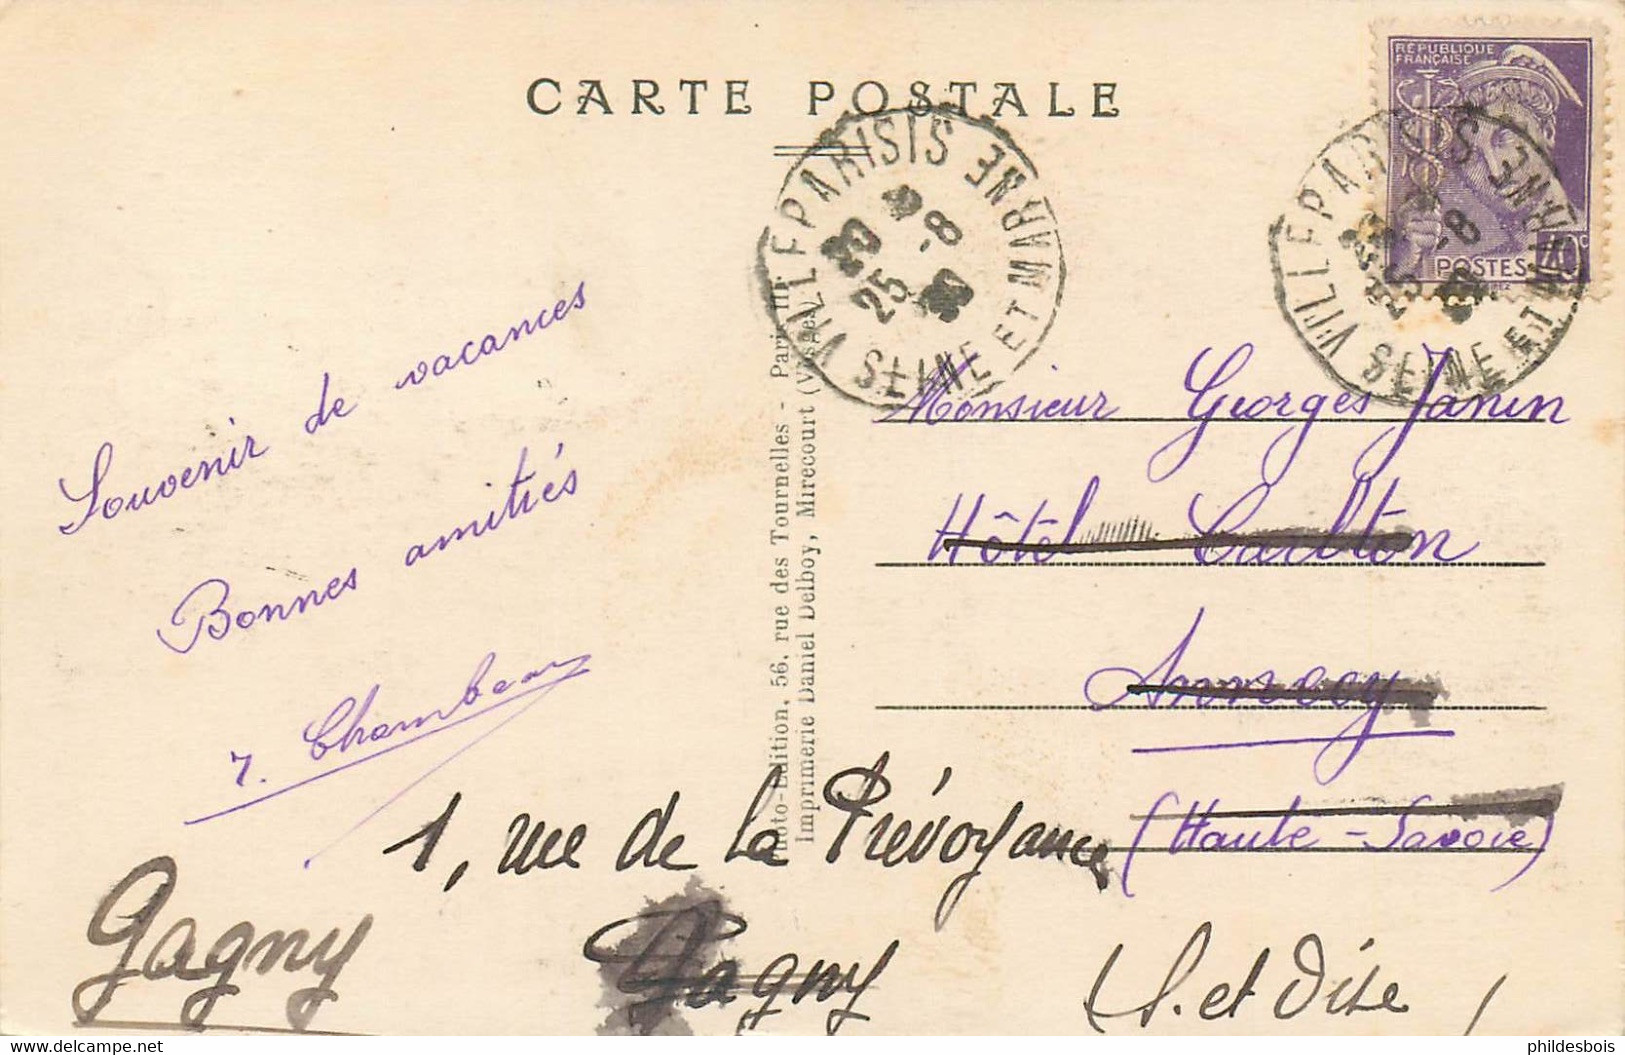 CARTE POSTALE
RÉPUBLIQUE
FRANÇAISE
POSTES
VILLEPARISIS
SEINE ET MARNE
25 -8
VILLEPARISIS
SEINE ET MARNE
25 -8
Souvenir de vacances
Bonnes amitiés
Monsieur Georges Janin
Hôtel Carlton
Annecy
(Haute-Savoie)
1, rue de la Prévoyance
Gagny
Gagny
(S. et Oise)
-Edition, 56, rue des Tournelles - Paris III.
Imprimerie Daniel Delboy, Mirecourt (Vosges)
phildesbois